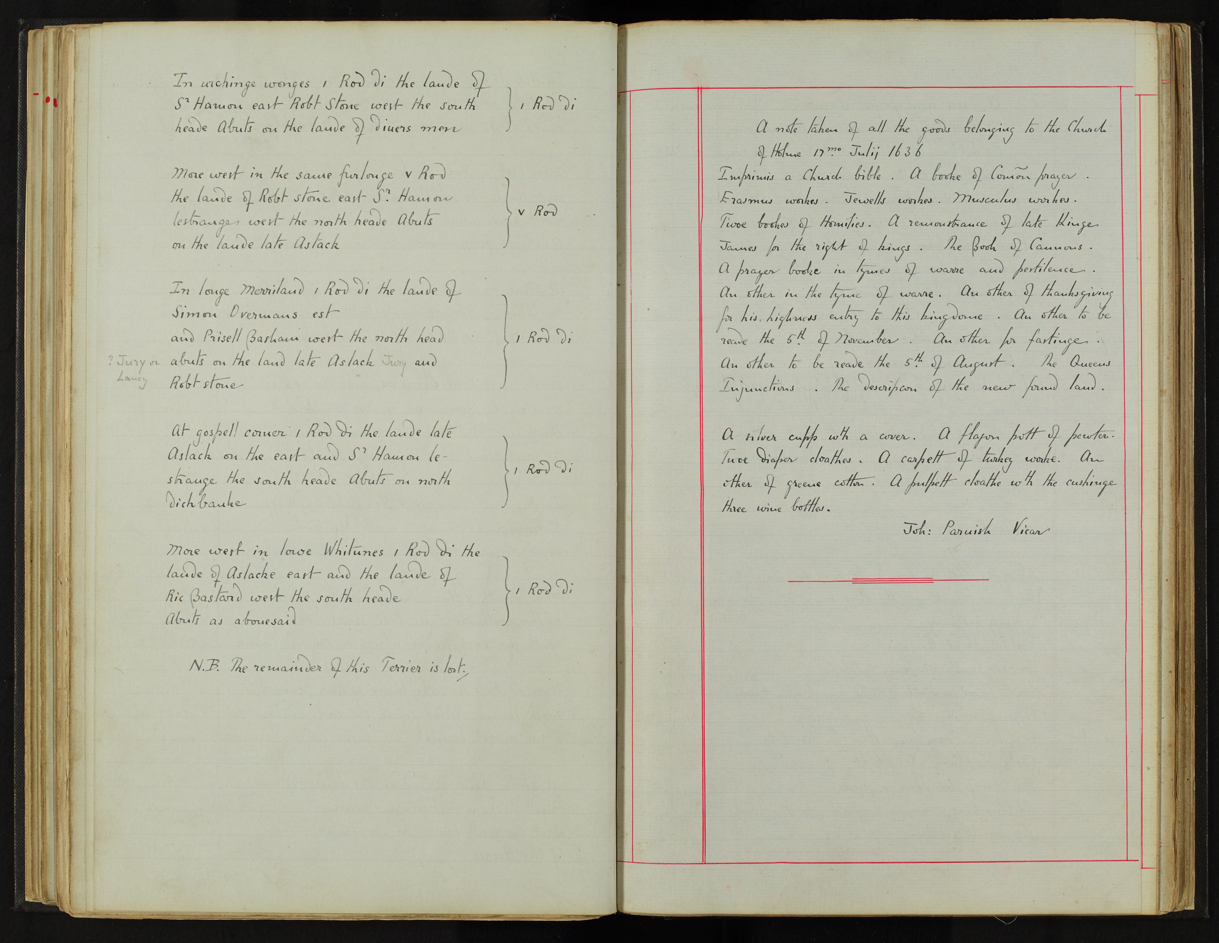 In wichinge wonges 1 Rod di the lande of
Sr Hamon east Robt Stone west the south
heade Abuts on the lande of diuers men
} 1 Rod di
More west in the same furlonge v Rod
the lande of Robt stone east Sr. Hamon
lestranges west the north heade Abuts
on the lande late Aslack
} v Rod
In longe Morriland 1 Rod di the lande of
Simon Overmans est
and Prisell Basham west the north head
? Jury or
Laney
abuts on the land late Aslack Jroy and
Robt stone
} 1 Rod di
At gospell corner 1 Rod di the lande late
Aslack on the east and Sr Hamon le-
strange the south heade Abuts on north
dichbanke
} 1 Rod di
More west in lowe Whitunes 1 Rod di the
lande of Aslacke east and the lande of
Ric Bastard west the south heade
Abuts as abouesaid
} 1 Rod di
N.B. The remainder of this Terrier is lost.
A note taken of all the goods belonging to the Church
of Holme 17mo Julij 1636
Imprimis a Church bible . A booke of Comõn prayer .
Erasmus workes . Jewells workes . Musculus workes .
Twoe bookes of Homilies . A remonstrance of late Kinge
James for the right of kings . The Book of Cannons .
A prayer booke in tymes of warre and pestilence .
An other in the tyme of warre . An other of thanksgiving
for his highness entry to this kingdome . An other to be
reade the 5th of November . An other for fastinge .
An other to be reade the 5th of August . The Queens
Injunctions . The descripcon of the new found land .
A silver cupp wth a cover . A flagon pott of pewter .
Twoe diaper cloathes . A carpett of turkey worke . An
other of greene cotton . A pulpett cloathe wth the cushinge
three wine bottles .
Joh: Parnish Vicar